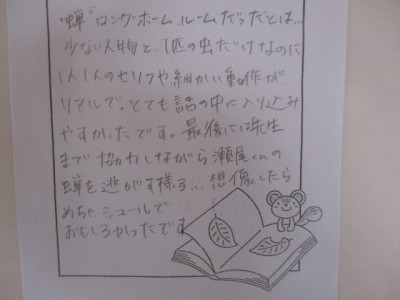 "蝉"ロングホームルームだったとは…
少ない人物と、1匹の虫だけなのに
1人1人のセリフや細かい動作が
リアルで、とても話の中に入り込み
やすかったです。最後には先生
まで協力しながら、瀬尾くんの
蝉を逃がす様子…想像したら
めちゃシュールで
おもしろかったです